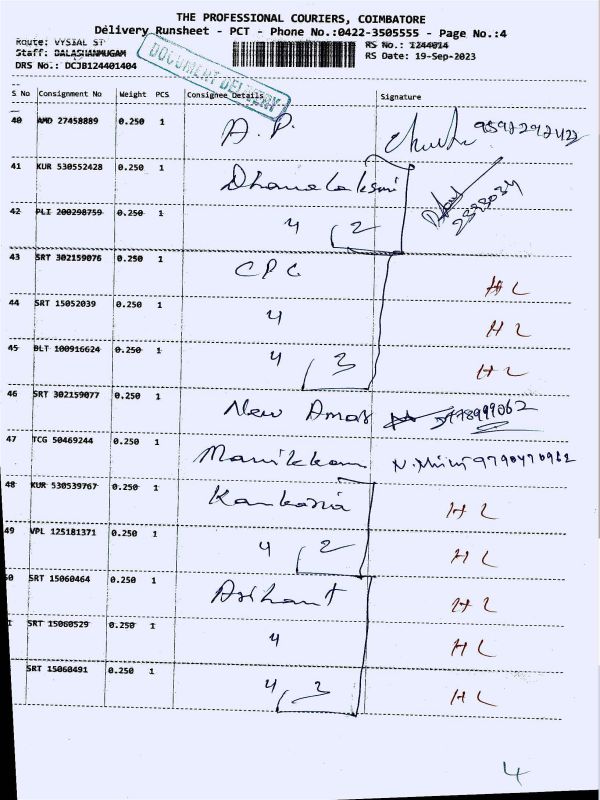 THE PROFESSIONAL COURIERS, COIMBATORE
Delivery Runsheet - PCT - Phone No.:0422-3505555 - Page No.:4
Route: VYSIAL ST
RS No.: 1244014
Staff: BALASHANMUGAM
RS Date: 19-Sep-2023
DRS No.: DCJB124401404
DOCUMENT DELIVERY
S No Consignment No Weight PCS Consignee Details Signature
40 AMD 27458889 0.250 1 A.P.
41 KUR 530552428 0.250 1 Dhanalakshmi
42 PLI 200298759 0.250 1 4 2
43 SRT 302159076 0.250 1 CPC HL
44 SRT 15052039 0.250 1 4 HL
45 BLT 100916624 0.250 1 4 3 HL
46 SRT 302159077 0.250 1 New Amar
47 TCG 50469244 0.250 1 Manikkam 9790470962
48 KUR 530539767 0.250 1 Kankaria HL
49 VPL 125181371 0.250 1 4 2 HL
0 SRT 15060464 0.250 1 Arihant HL
SRT 15060529 0.250 1 4 HL
SRT 15060491 0.250 1 4 3 HL
4